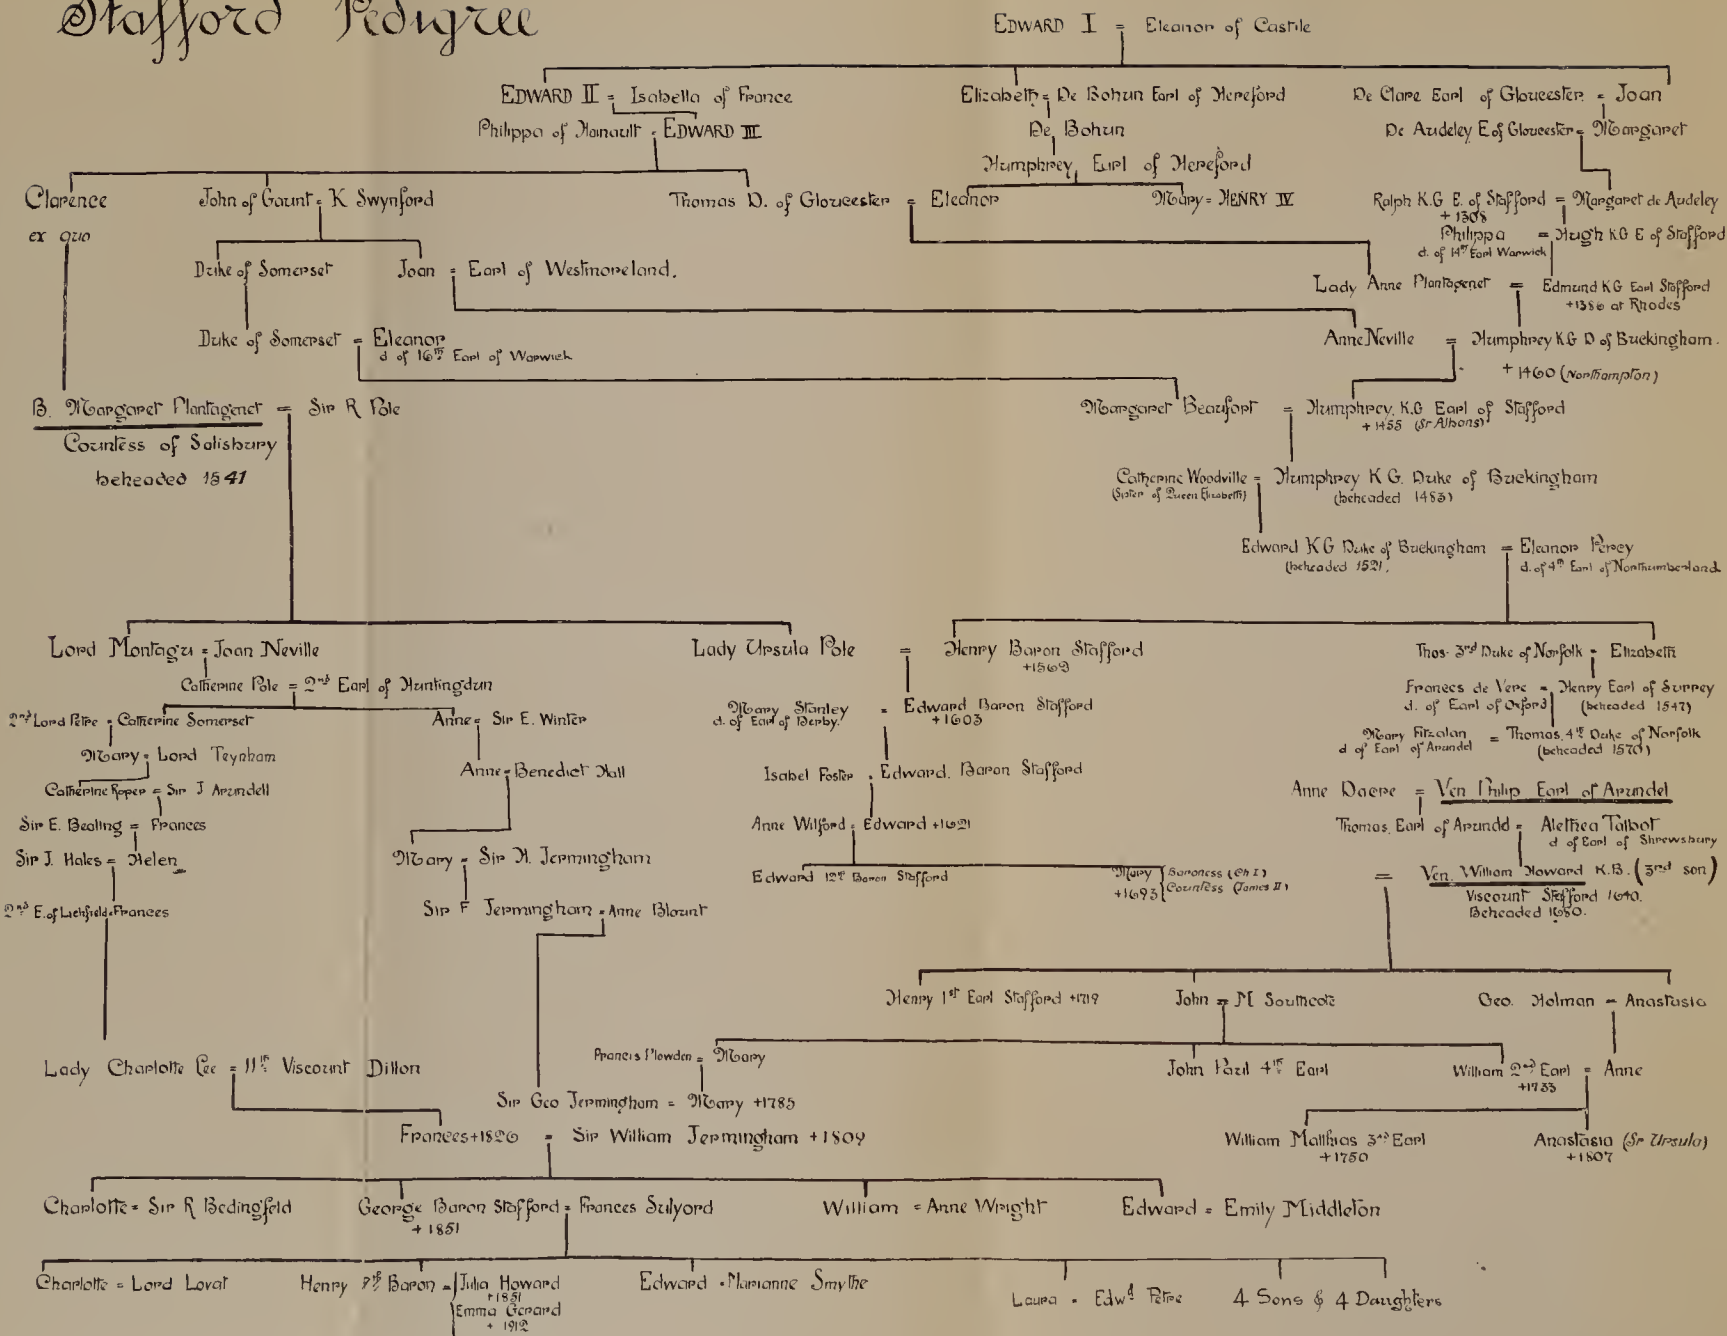 Stafford Pedigree
EDWARD I = Eleanor of Castile
EDWARD II = Isabella of France
Elizabeth = De Bohun Earl of Hereford
De Clare Earl of Gloucester = Joan
Philippa of Hainault = EDWARD III
De Bohun
De Audeley E of Gloucester = Margaret
Humphrey Earl of Hereford
Clarence
John of Gaunt = K Swynford
Thomas D. of Gloucester = Eleanor
Mary = HENRY IV
Ralph K.G E. of Stafford = Margaret de Audeley
+ 1308
ex quo
Philippa = Hugh KG E of Stafford
d. of 14th Earl Warwick
Duke of Somerset
Joan = Earl of Westmoreland.
Lady Anne Plantagenet = Edmund KG Earl Stafford
+1386 at Rhodes
Duke of Somerset = Eleanor
d of 16th Earl of Warwick
Anne Neville = Humphrey KG D of Buckingham.
+ 1460 (Northampton)
B. Margaret Plantagenet = Sir R Pole
Countess of Salisbury
beheaded 1541
Margaret Beaufort = Humphrey. K.G Earl of Stafford
+ 1455 (St Albans)
Catherine Woodville = Humphrey K G. Duke of Buckingham
(Sister of Queen Elizabeth)
(beheaded 1483)
Edward K G Duke of Buckingham = Eleanor Percy
(beheaded 1521.
d. of 4th Earl of Northumberland
Lord Montagu = Joan Neville
Lady Ursula Pole = Henry Baron Stafford
+1563
Thos. 3rd Duke of Norfolk = Elizabeth
Catherine Pole = 2nd Earl of Huntingdun
Frances de Vere = Henry Earl of Surrey
d. of Earl of Oxford
(beheaded 1547)
2nd Lord Petre = Catherine Somerset
Anne = Sir E. Winter
Mary Stanley = Edward Baron Stafford
d. of Earl of Derby.
+ 1603
Mary Fitzalan = Thomas. 4th Duke of Norfolk
d of Earl of Arundel
(beheaded 1570)
Mary = Lord Teynham
Anne = Benedict Hall
Isabel Foster = Edward. Baron Stafford
Catherine Roper = Sir J Arundell
Anne Dacre = Ven Philip Earl of Arundel
Sir E. Bealing = Frances
Anne Wilford = Edward +1621
Thomas. Earl of Arundel = Alethea Talbot
d of Earl of Shrewsbury
Sir J. Hales = Helen
Mary = Sir H. Jermingham
Edward 12th Baron Stafford
Mary { Baroness (Ch I)
+1693 { Countess (James II)
= Ven. William Howard K.B. (3rd son)
Viscount Stafford 1640.
Beheaded 1680.
2nd E. of Lichfield = Frances
Sir F Jermingham = Anne Blount
Henry 1st Earl Stafford +1719
John = M Southcote
Geo. Holman = Anastasia
Lady Charlotte Lee = 11th Viscount Dillon
Francis Plowden = Mary
John Paul 4th Earl
William 2nd Earl = Anne
+1733
Sir Geo Jermingham = Mary +1785
Frances +1826 = Sir William Jermingham + 1809
William Matthias 3rd Earl
+ 1750
Anastasia (Sr Ursula)
+ 1807
Charlotte = Sir R Bedingfeld
George Baron Stafford = Frances Sulyord
+ 1851
William = Anne Wright
Edward = Emily Middleton
Charlotte = Lord Lovat
Henry Baron = { Julia Howard
+ 1851
{ Emma Gerard
+ 1912
Edward = Marianne Smythe
Laura = Edwd Petre
4 Sons & 4 Daughters